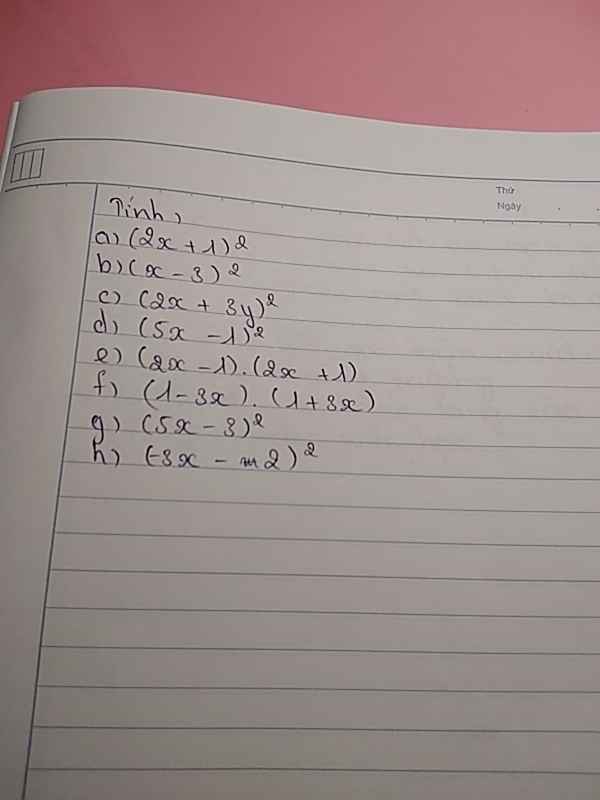 Thứ
Ngày
Tính,
a) (2x + 1)²
b) (x - 3)²
c) (2x + 3y)²
d) (5x - 1)²
e) (2x - 1).(2x + 1)
f) (1 - 3x).(1 + 3x)
g) (5x - 3)²
h) (-3x - 2)²